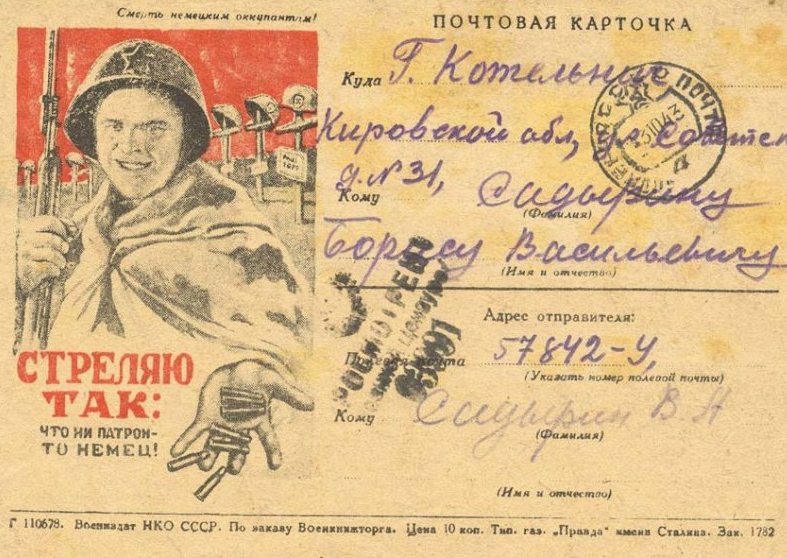 Смерть немецким оккупантам!
ПОЧТОВАЯ КАРТОЧКА
Куда Г. Котельнич
Кировской обл, ул. Советск
д. N 31,
Кому Садырину
(Фамилия)
Борису Васильевичу
(Имя и отчество)
Адрес отправителя:
Полевая почта 57842-У,
(Указать номер полевой почты)
Кому Садырин В А
(Фамилия)
(Имя и отчество)
СТРЕЛЯЮ
ТАК:
ЧТО НИ ПАТРОН-
ТО НЕМЕЦ!
ПРОСМОТРЕНО
Военной Цензурой
Г 110678. Воениздат НКО СССР. По заказу Военкнижторга. Цена 10 коп. Тип. газ. „Правда" имени Сталина. Зак. 1782